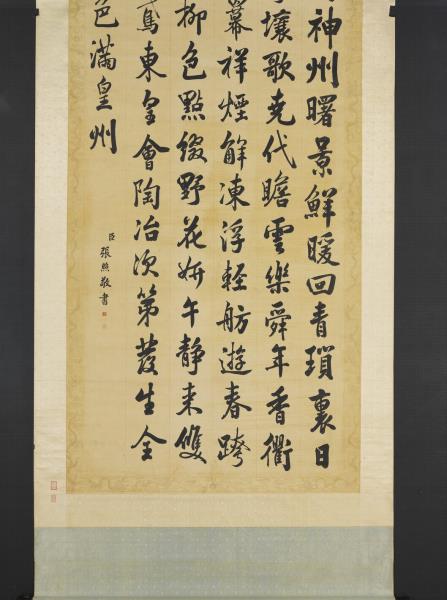 神州曙景鮮暖回青瑣裏日
壤歌堯代瞻雲樂舜年香衢
祥煙解凍浮輕舫遊春跨
柳色點綴野花妍午靜來雙
鳶東皇會陶冶次第發生全
色滿皇州
臣張照敬書